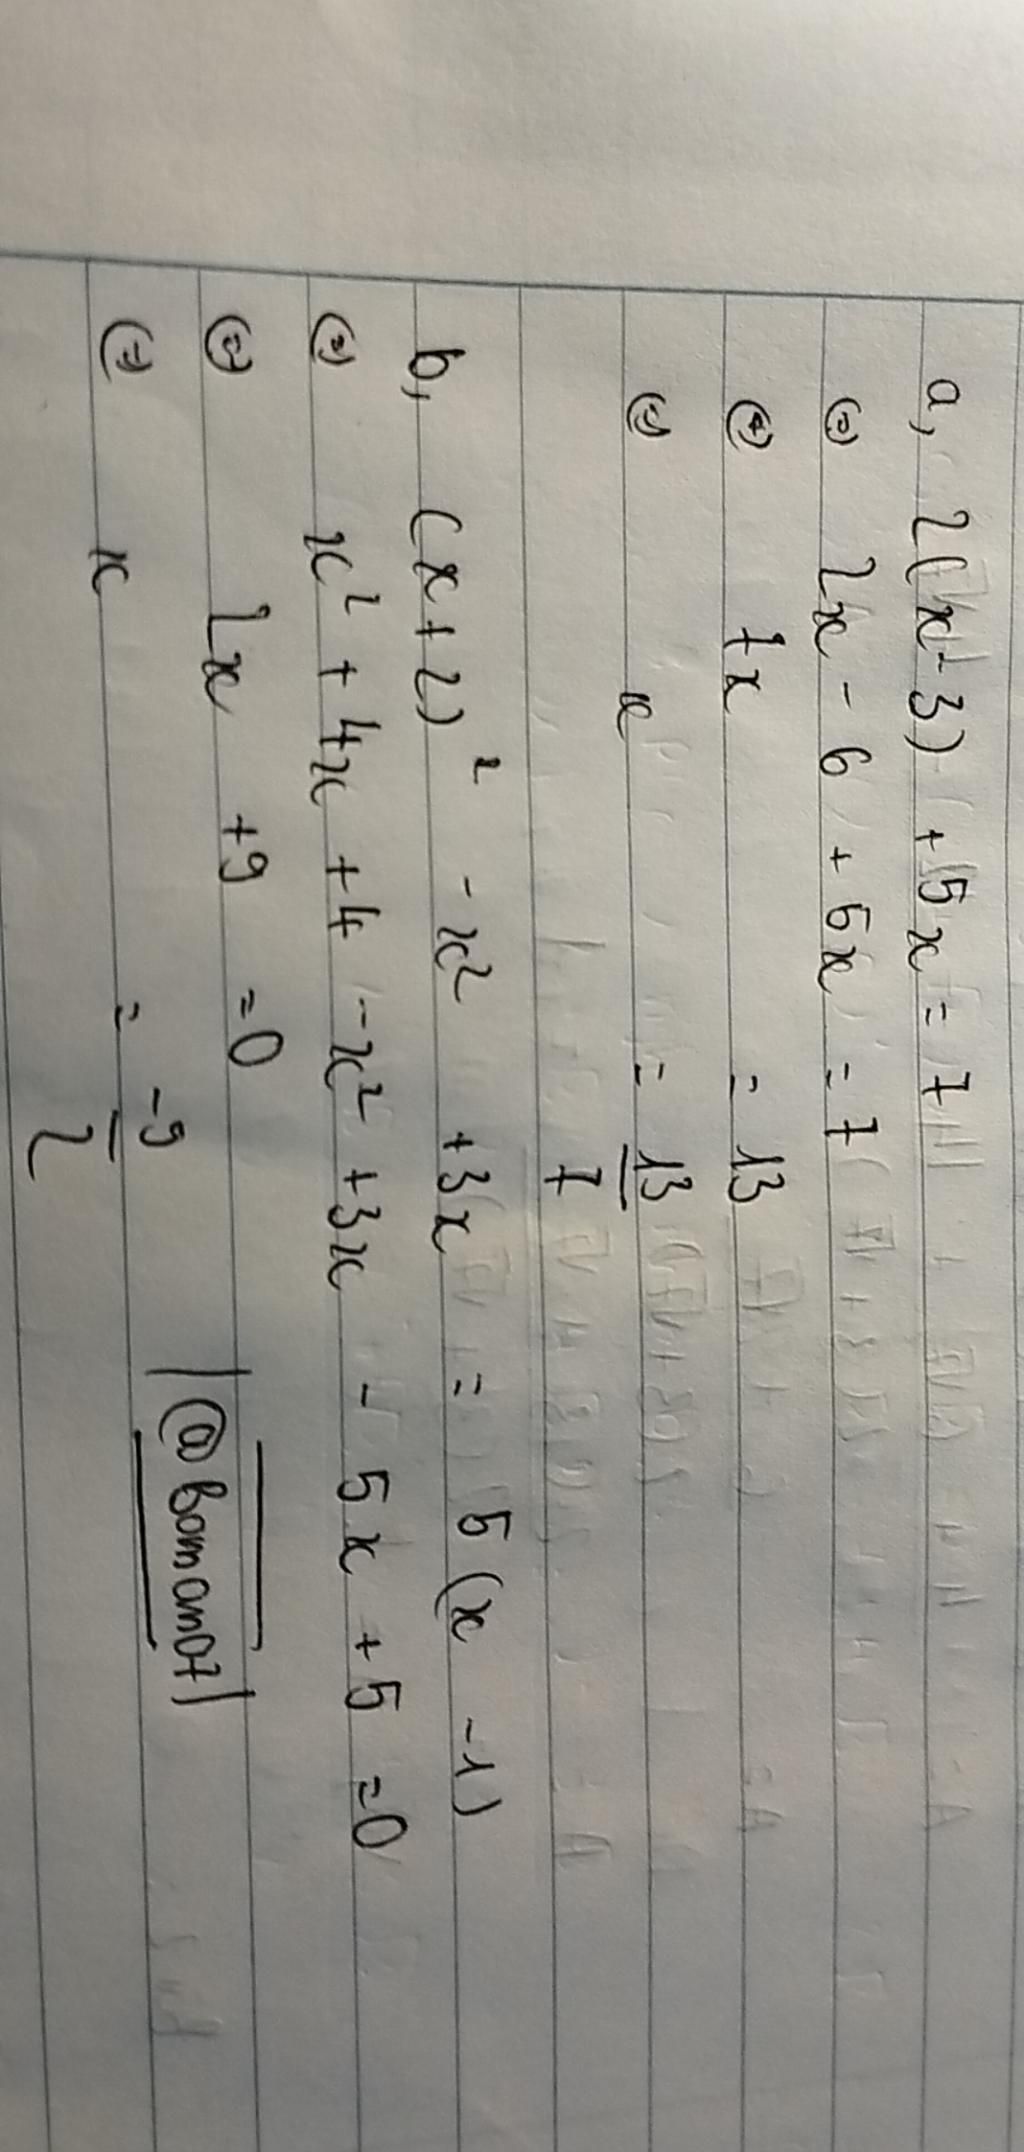 a, 2(x-3) + 5x = 7
⇔ 2x - 6 + 5x = 7
⇔ 7x = 13
⇔ x = 13/7
b, (x+2)² - x² + 3x = 5(x - 1)
⇔ x² + 4x + 4 - x² + 3x - 5x + 5 = 0
⇔ 2x + 9 = 0
⇔ x = -9/2
|@bomam07|